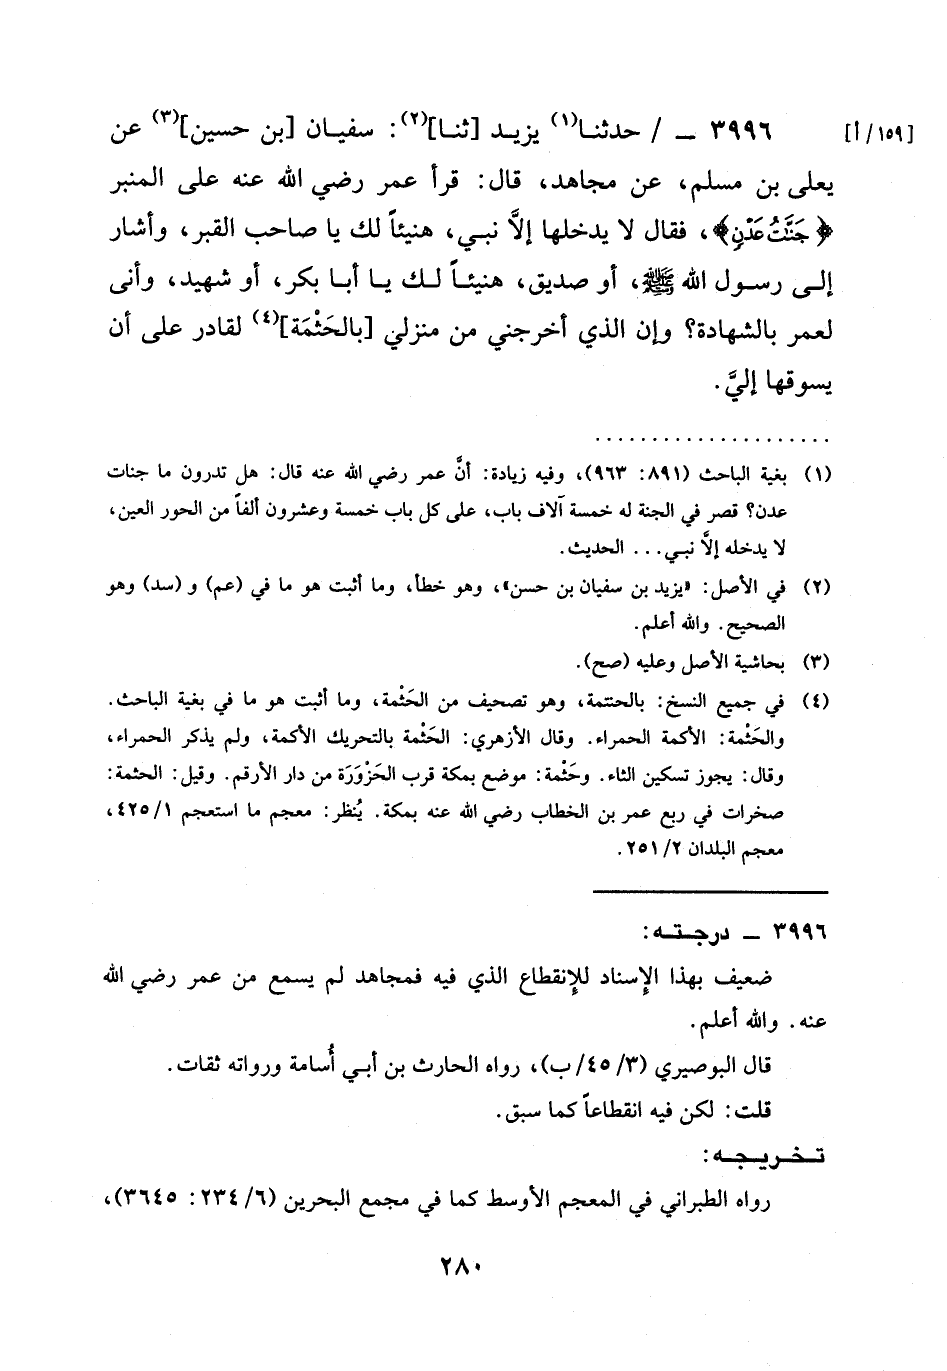 [١٥٩/أ] ٣٩٩٦ ــ / حدثنا(١) يزيد [ثنا](٢): سفيان [بن حسين](٣) عن
يعلى بن مسلم، عن مجاهد، قال: قرأ عمر رضي الله عنه على المنبر
﴿جَنَّٰتُ عَدْنٍ﴾، فقال لا يدخلها إلَّا نبي، هنيئاً لك يا صاحب القبر، وأشار
إلى رسول الله ﷺ، أو صديق، هنيئاً لك يا أبا بكر، أو شهيد، وأنى
لعمر بالشهادة؟ وإن الذي أخرجني من منزلي [بالحَثْمَة](٤) لقادر على أن
يسوقها إليَّ.
(١) بغية الباحث (٨٩١: ٩٦٣)، وفيه زيادة: أنَّ عمر رضي الله عنه قال: هل تدرون ما جنات
عدن؟ قصر في الجنة له خمسة آلاف باب، على كل باب خمسة وعشرون ألفاً من الحور العين،
لا يدخله إلَّا نبي... الحديث.
(٢) في الأصل: «يزيد بن سفيان بن حسن»، وهو خطأ، وما أثبت هو ما في (عم) و (سد) وهو
الصحيح. والله أعلم.
(٣) بحاشية الأصل وعليه (صح).
(٤) في جميع النسخ: بالحنتمة، وهو تصحيف من الحَثْمة، وما أثبت هو ما في بغية الباحث.
والحَثْمة: الأكمة الحمراء. وقال الأزهري: الحَثْمة بالتحريك الأكمة، ولم يذكر الحمراء،
وقال: يجوز تسكين الثاء. وحَثْمة: موضع بمكة قرب الحَزْوَرَة من دار الأرقم. وقيل: الحثمة:
صخرات في ربع عمر بن الخطاب رضي الله عنه بمكة. يُنظر: معجم ما استعجم ٤٢٥/١،
معجم البلدان ٢٥١/٢.
٣٩٩٦ ــ درجته:
ضعيف بهذا الإسناد للإنقطاع الذي فيه فمجاهد لم يسمع من عمر رضي الله
عنه. والله أعلم.
قال البوصيري (٣/٤٥/ب)، رواه الحارث بن أبي أُسامة ورواته ثقات.
قلت: لكن فيه انقطاعاً كما سبق.
تخريجه:
رواه الطبراني في المعجم الأوسط كما في مجمع البحرين (٦/٢٣٤: ٣٦٤٥)،
٢٨٠